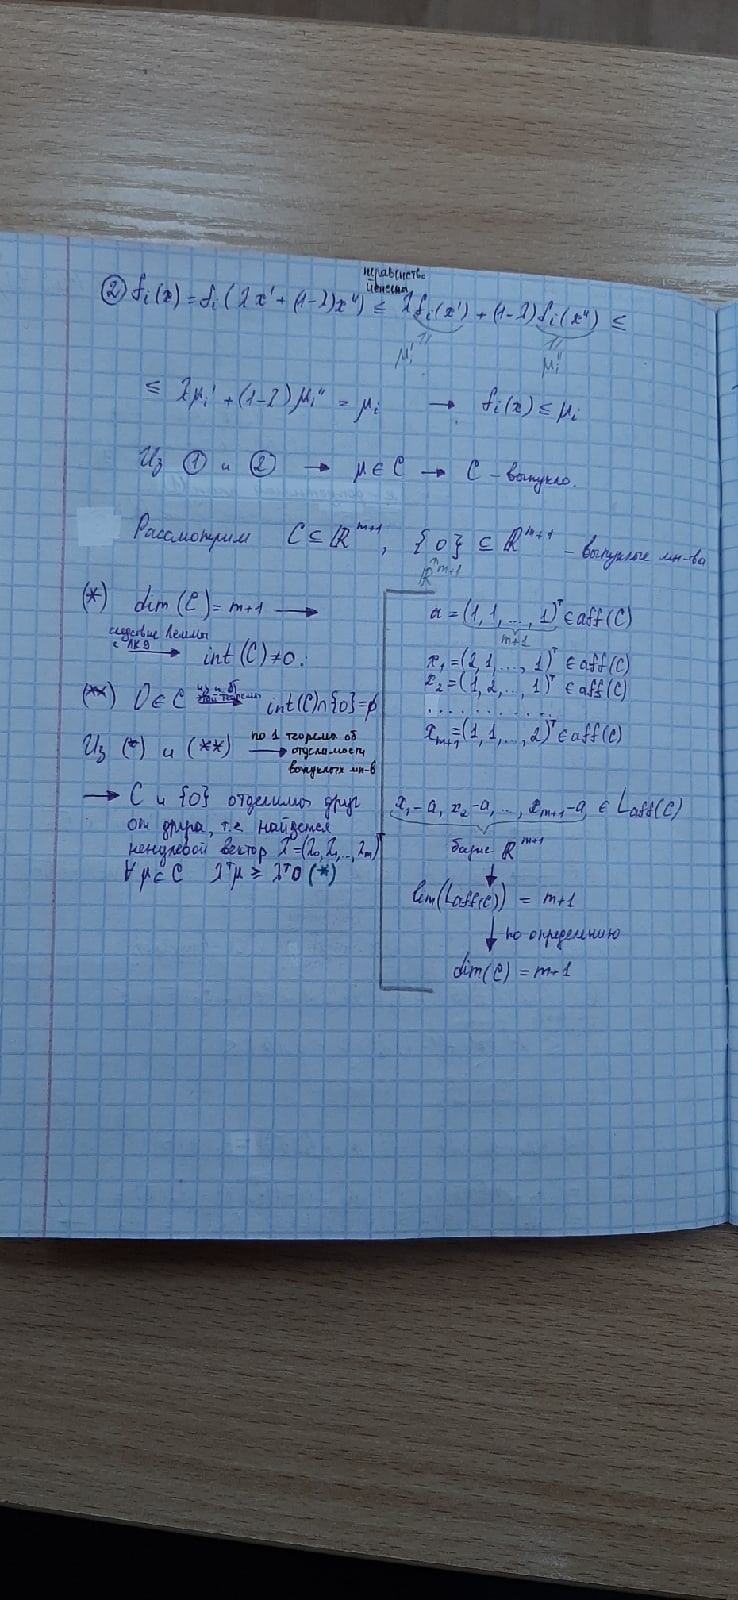 неравенство
Йенсена
② fᵢ(x) = fᵢ(λx' + (1-λ)x'') ≤ λfᵢ(x') + (1-λ)fᵢ(x'') ≤
μᵢ' μᵢ''
≤ λμᵢ' + (1-λ)μᵢ'' = μᵢ → fᵢ(x) ≤ μᵢ
Из ① и ② → μ ∈ C → C - выпукло.
Рассмотрим C ⊆ ℝᵐ⁺¹, {0} ⊆ ℝᵐ⁺¹ - выпуклые мн-ва
ℝᵐ⁺¹
(*) dim(C) = m+1 →
следствие Леммы
о ЛКВ
→ int(C) ≠ 0.
(**) 0 ∈ C → int(C)∩{0} = ϕ
Из (*) и (**) → по 1 теореме об
отделимости
выпуклых мн-в
→ C и {0} отделимы друг
от друга, т.е. найдется
ненулевой вектор λ = (λ₀, λ₁, .., λₘ)ᵀ
∀ μ ∈ C λᵀμ ≥ λᵀ0 (*)
a = (1, 1, ..., 1)ᵀ ∈ aff(C)
m+1
x₁ = (2, 1, ..., 1)ᵀ ∈ aff(C)
x₂ = (1, 2, ..., 1)ᵀ ∈ aff(C)
. . . . . . . . . . . .
xₘ₊₁ = (1, 1, ..., 2)ᵀ ∈ aff(C)
x₁-a, x₂-a, ..., xₘ₊₁-a ∈ Laff(C)
базис ℝᵐ⁺¹
↓
dim(Laff(C)) = m+1
↓ по определению
dim(C) = m+1